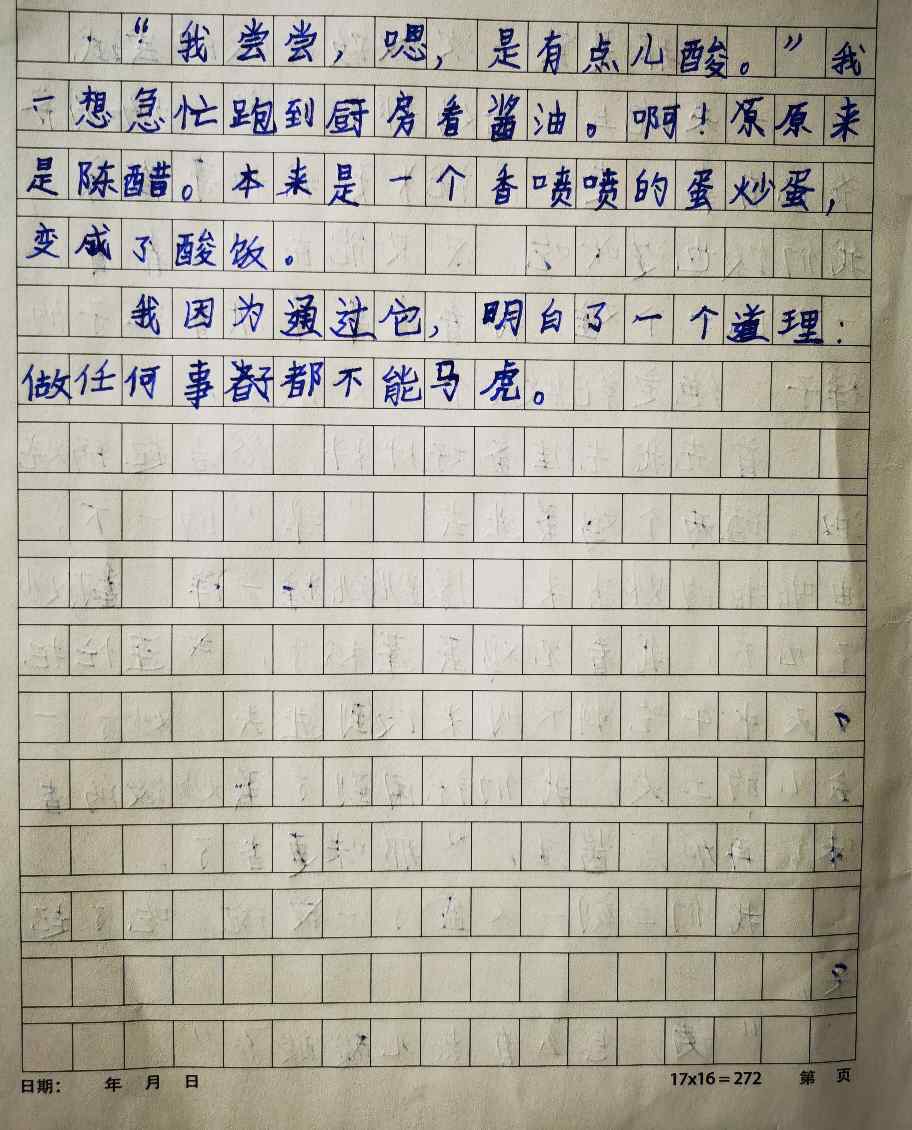 “我尝尝，嗯，是有点儿酸。”我
一想急忙跑到厨房看酱油。啊！原原来
是陈醋。本来是一个香喷喷的蛋炒蛋，
变成了酸饭。
我因为通过它，明白了一个道理：
做任何事都不能马虎。
日期： 年 月 日 17x16=272 第 页